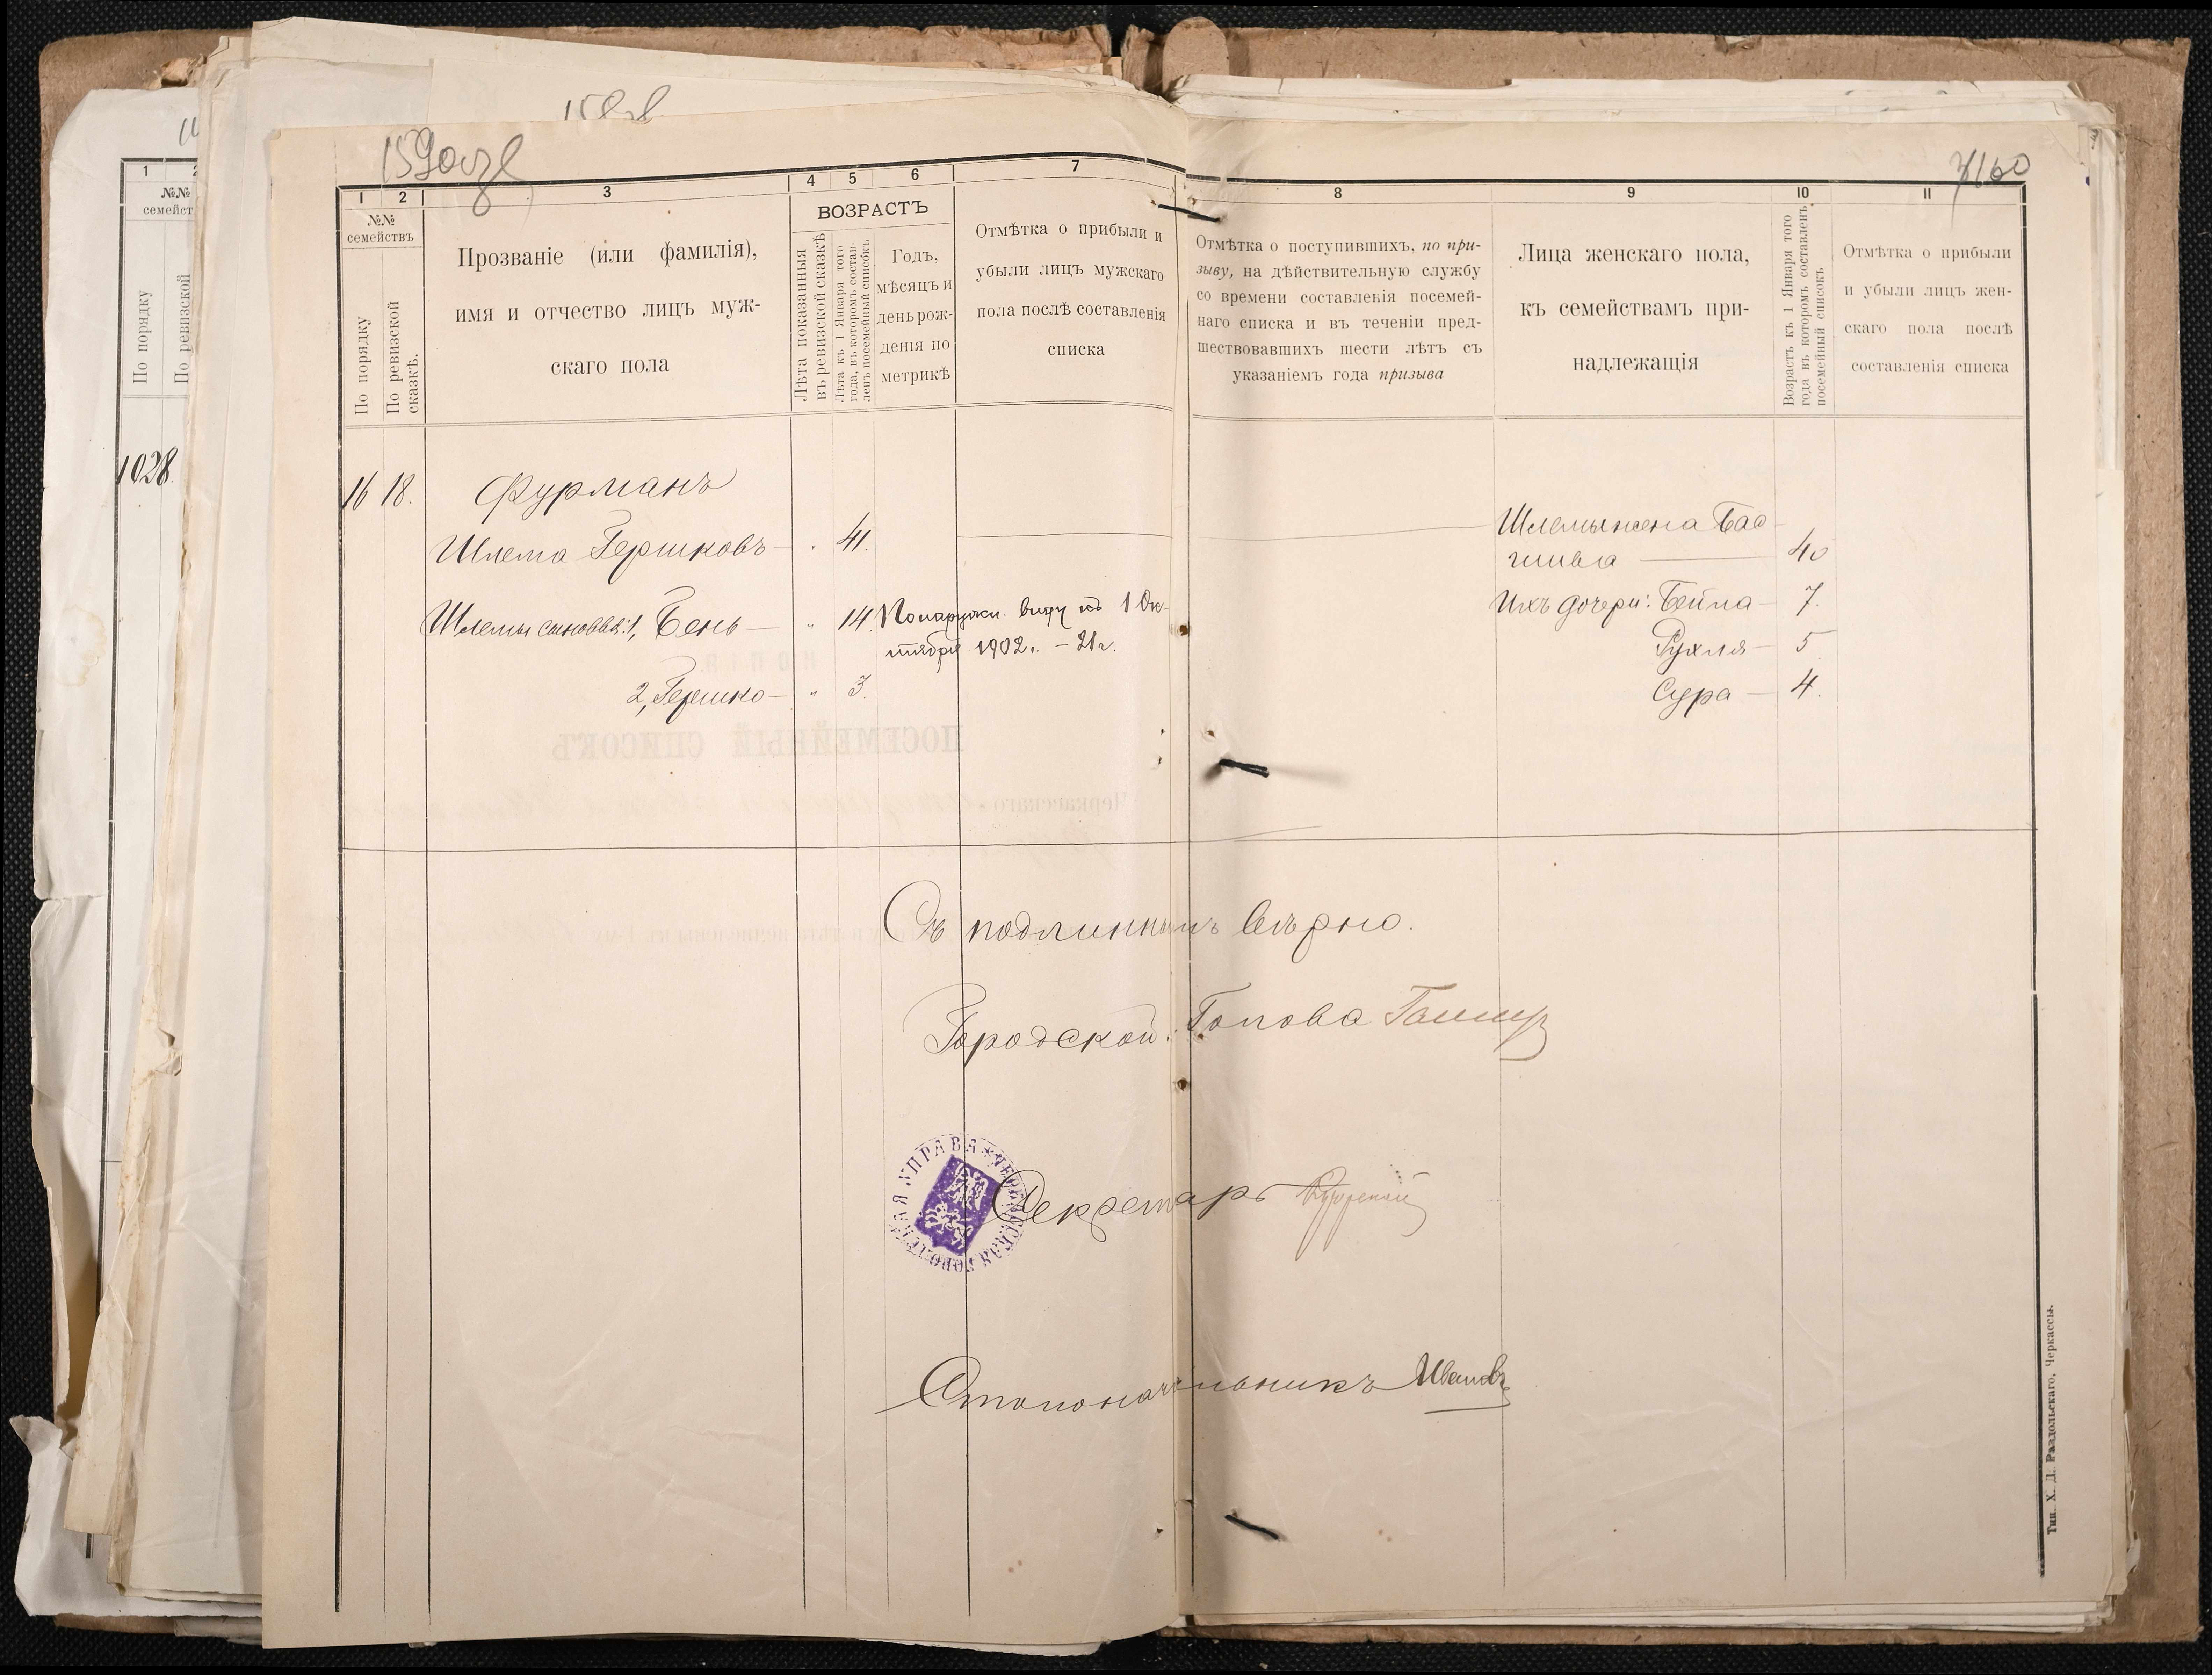 1
№№
семейст
По порядку
По ревизской
1028.
159
7160
1
2
3
4
5
6
7
№№
семействъ
По порядку
По ревизской
сказкѣ.
Прозваніе (или фамилія),
имя и отчество лицъ муж-
скаго пола
ВОЗРАСТЪ
Лѣта показанныя
въ ревизской сказкѣ
Лѣта къ 1 Января того
года, въ которомъ состав-
ленъ посемейный списокъ
Годъ,
мѣсяцъ и
день рож-
денія по
метрикѣ
Отмѣтка о прибыли и
убыли лицъ мужскаго
пола послѣ составленія
списка
8
9
10
11
Отмѣтка о поступившихъ, по при-
зыву, на дѣйствительную службу
со времени составленія посемей-
наго списка и въ теченіи пред-
шествовавшихъ шести лѣтъ съ
указаніемъ года призыва
Лица женскаго пола,
къ семействамъ при-
надлежащія
Возрастъ къ 1 Января того
года въ которомъ составленъ
посемейный списокъ
Отмѣтка о прибыли
и убыли лицъ жен-
скаго пола послѣ
составленія списка
16 18. Фурманъ
Шлема Гершковъ — " 41.
Шлемы сыновья: 1, Бень — " 14. По наружн. виду къ 1 Ок-
тября 1902 г. — 21 г.
2, Гершко — " 3.
Шлемы жена Бас-
шива — 40
Ихъ дочери: Бейла — 7.
Рухля — 5
Сура — 4.
Съ подлиннымъ вѣрно.
Городской Голова
ЧЕРКАССКАЯ ГОРОДСКАЯ УПРАВА
Секретарь
Столоначальникъ Ивановъ
Тип. Х. Д. Раздольскаго, Черкассы.